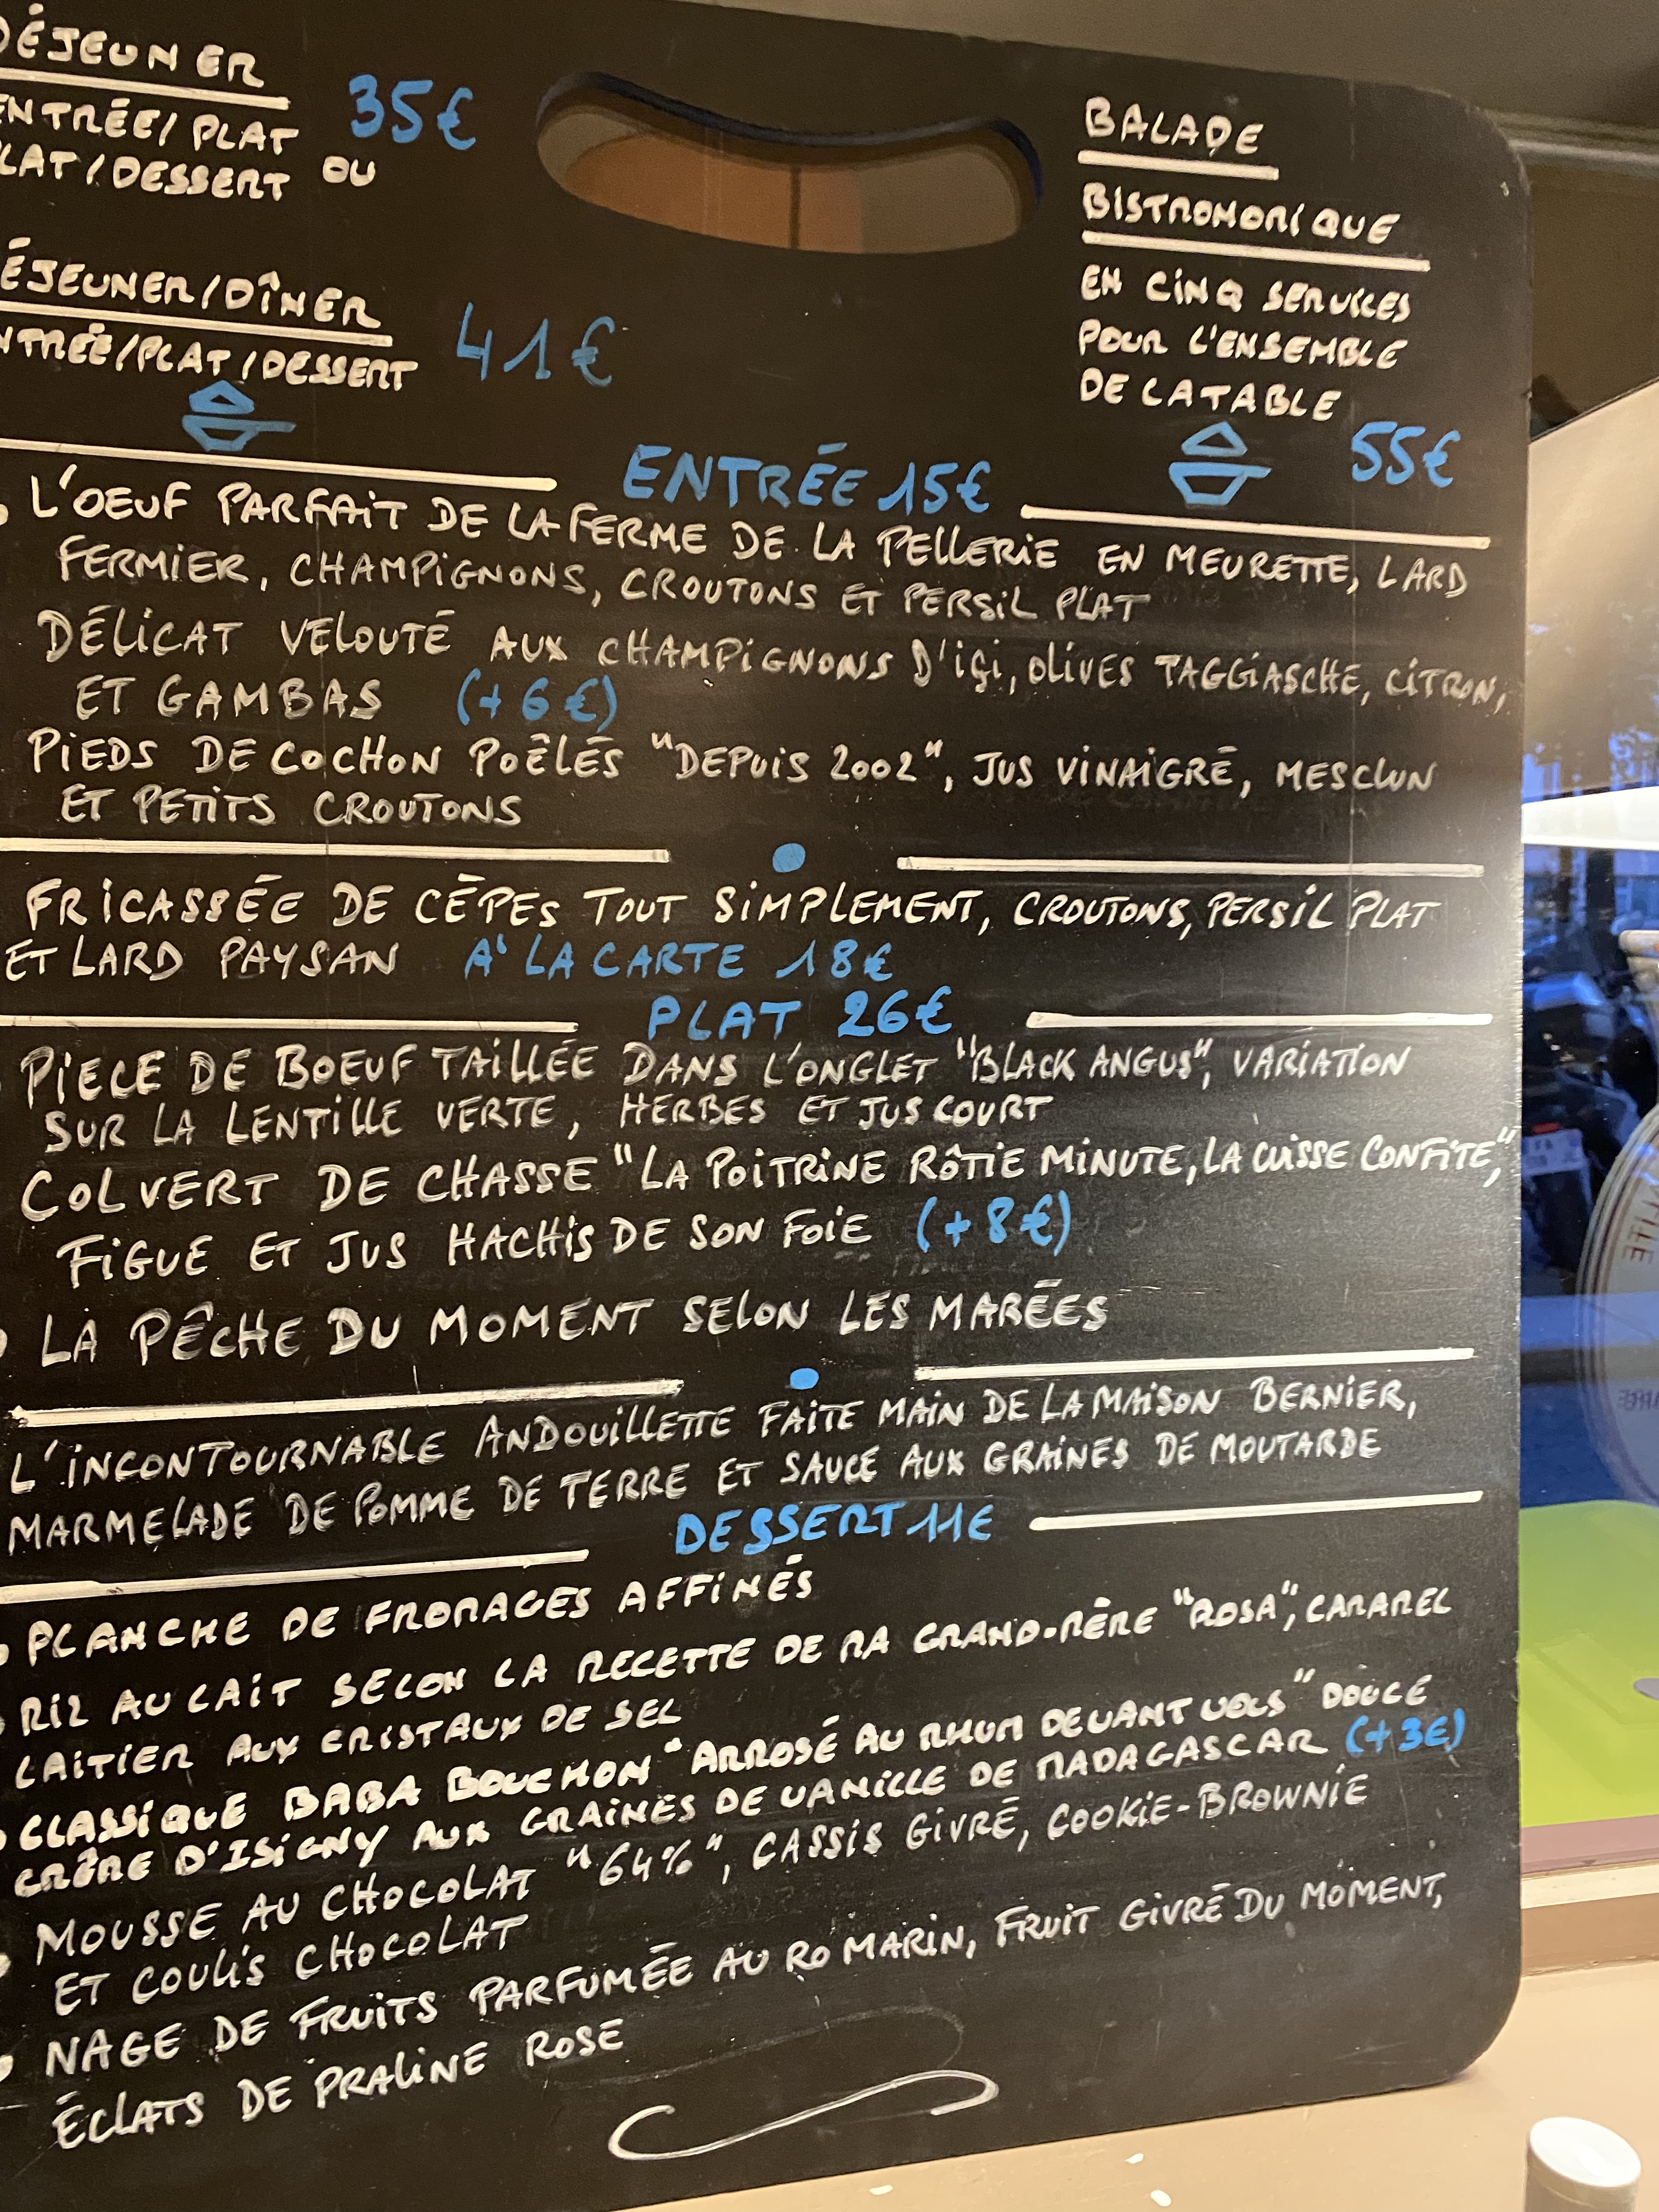 DÉJEUNER
ENTRÉE/PLAT 35€
PLAT/DESSERT OU
DÉJEUNER/DÎNER
ENTRÉE/PLAT/DESSERT 41€
BALADE
BISTRONOMIQUE
EN CINQ SERVICES
POUR L'ENSEMBLE
DE LA TABLE
55€
ENTRÉE 15€
L'OEUF PARFAIT DE LA FERME DE LA PELLERIE EN MEURETTE, LARD
FERMIER, CHAMPIGNONS, CROUTONS ET PERSIL PLAT
DÉLICAT VELOUTÉ AUX CHAMPIGNONS D'IÇI, OLIVES TAGGIASCHE, CITRON,
ET GAMBAS (+6€)
PIEDS DE COCHON POÊLÉS "DEPUIS 2002", JUS VINAIGRÉ, MESCLUN
ET PETITS CROUTONS
FRICASSÉE DE CÉPES TOUT SIMPLEMENT, CROUTONS, PERSIL PLAT
ET LARD PAYSAN A' LA CARTE 18€
PLAT 26€
PIECE DE BOEUF TAILLÉE DANS L'ONGLET "BLACK ANGUS", VARIATION
SUR LA LENTILLE VERTE, HERBES ET JUS COURT
COLVERT DE CHASSE "LA POITRINE RÔTIE MINUTE, LA CUISSE CONFITE,"
FIGUE ET JUS HACHIS DE SON FOIE (+8€)
LA PÊCHE DU MOMENT SELON LES MARÉES
L'INCONTOURNABLE ANDOUILLETTE FAITE MAIN DE LA MAISON BERNIER,
MARMELADE DE POMME DE TERRE ET SAUCE AUX GRAINES DE MOUTARDE
DESSERT 11€
PLANCHE DE FROMAGES AFFINÉS
RIZ AU LAIT SELON LA RECETTE DE MA GRAND-MÈRE "ROSA", CARAMEL
LAITIER AUX CRISTAUX DE SEL
CLASSIQUE BABA BOUCHON "ARROSÉ AU RHUM DEVANT VOUS" DOUCE
CRÈME D'ISIGNY AUX GRAINES DE VANILLE DE MADAGASCAR (+3€)
MOUSSE AU CHOCOLAT "64%", CASSIS GIVRÉ, COOKIE-BROWNIE
ET COULIS CHOCOLAT
NAGE DE FRUITS PARFUMÉE AU ROMARIN, FRUIT GIVRÉ DU MOMENT,
ÉCLATS DE PRALINE ROSE